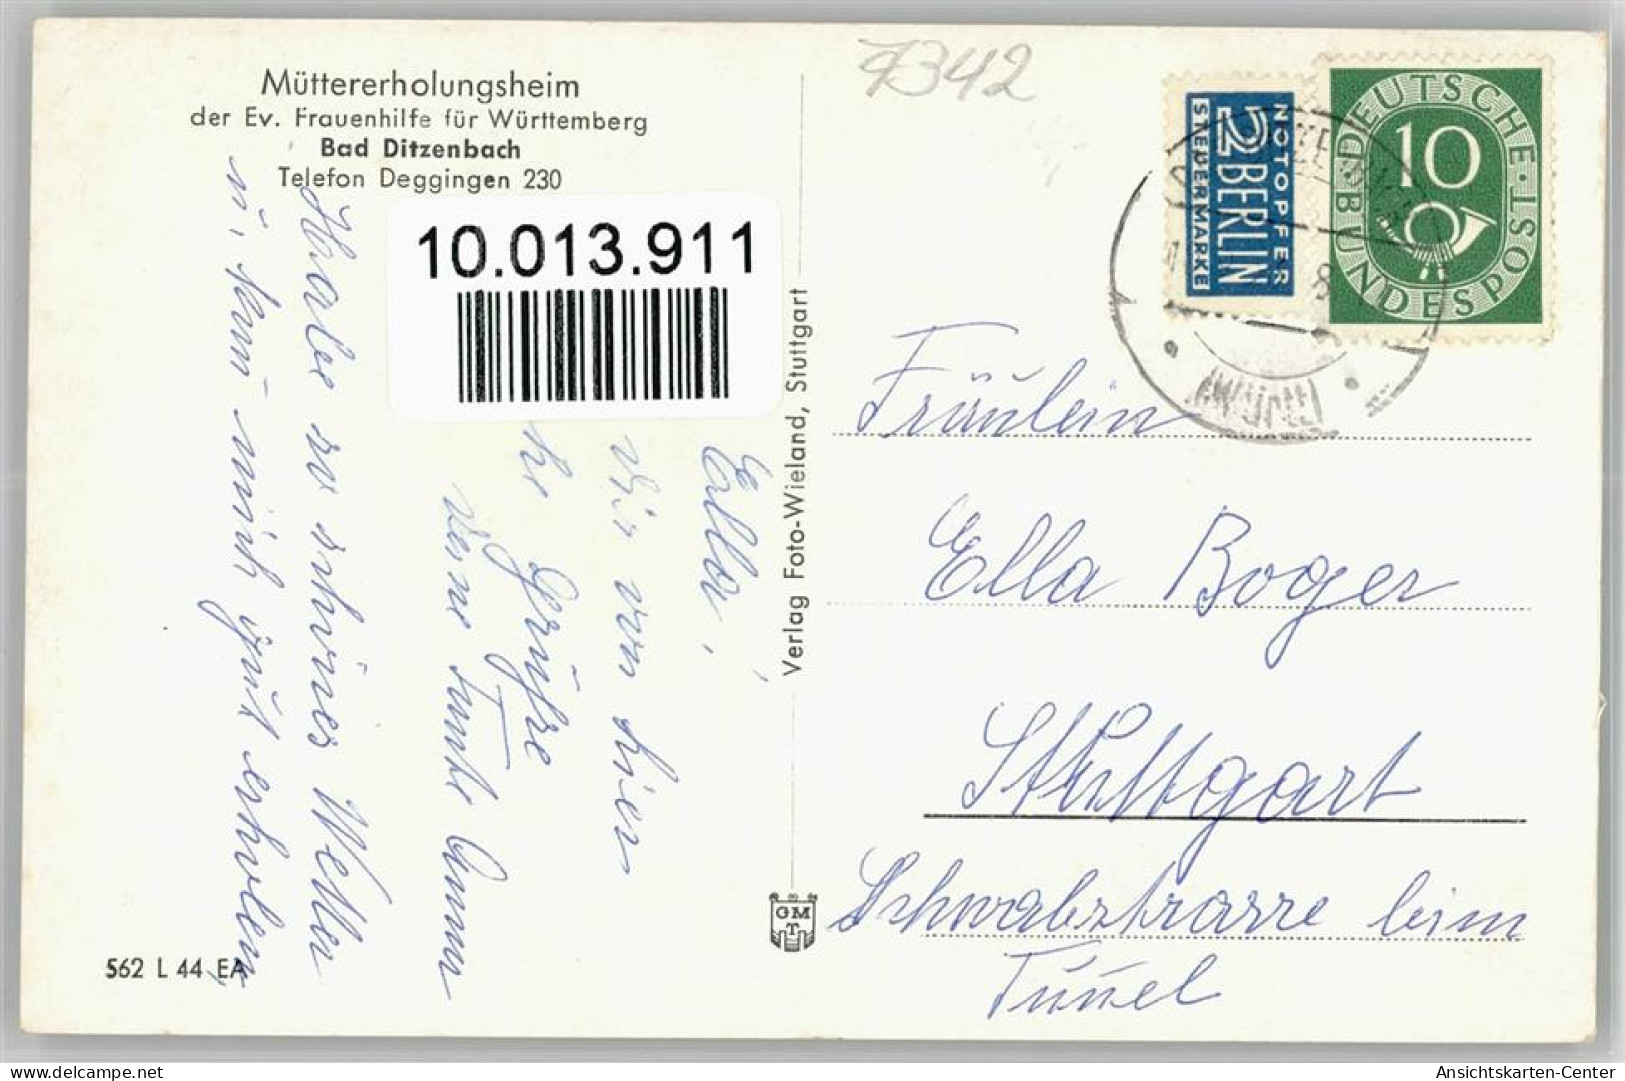 Müttererholungsheim
der Ev. Frauenhilfe für Württemberg
Bad Ditzenbach
Telefon Deggingen 230
10.013.911
7342
NOTOPFER
2 BERLIN
STEUERMARKE
DEUTSCHE BUNDESPOST
10
Ella,
Dir von hier
Grüße
Deine Tante Anna
Habe so schönes Wetter
u. kann mich gut erholen
Verlag Foto-Wieland, Stuttgart
Fräulein
Ella Boger
Stuttgart
Schwabstrasse beim
Tunnel
GMT
562 L 44 EA
Ansichtskarten-Center